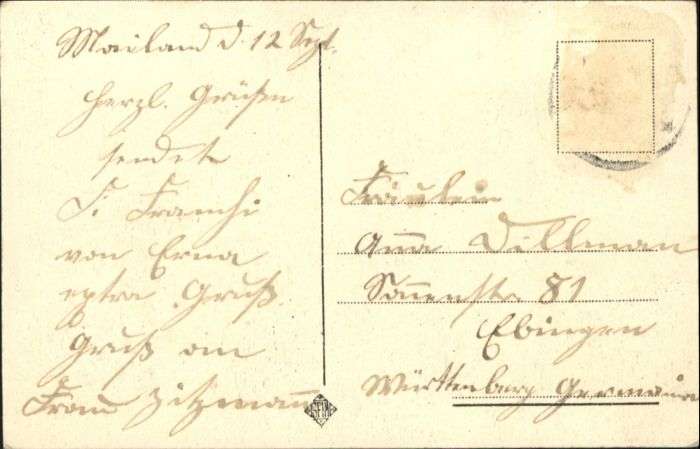 Mailand d. 12 Sept.
Herzl. Grüßen
sendet
F. Franchi
von Erna
extra Gruß.
Gruß an
Frau Zitzmann
Fräulein
Anna Dillman
Sonnenstr. 81
Ebingen
Württenberg Germania